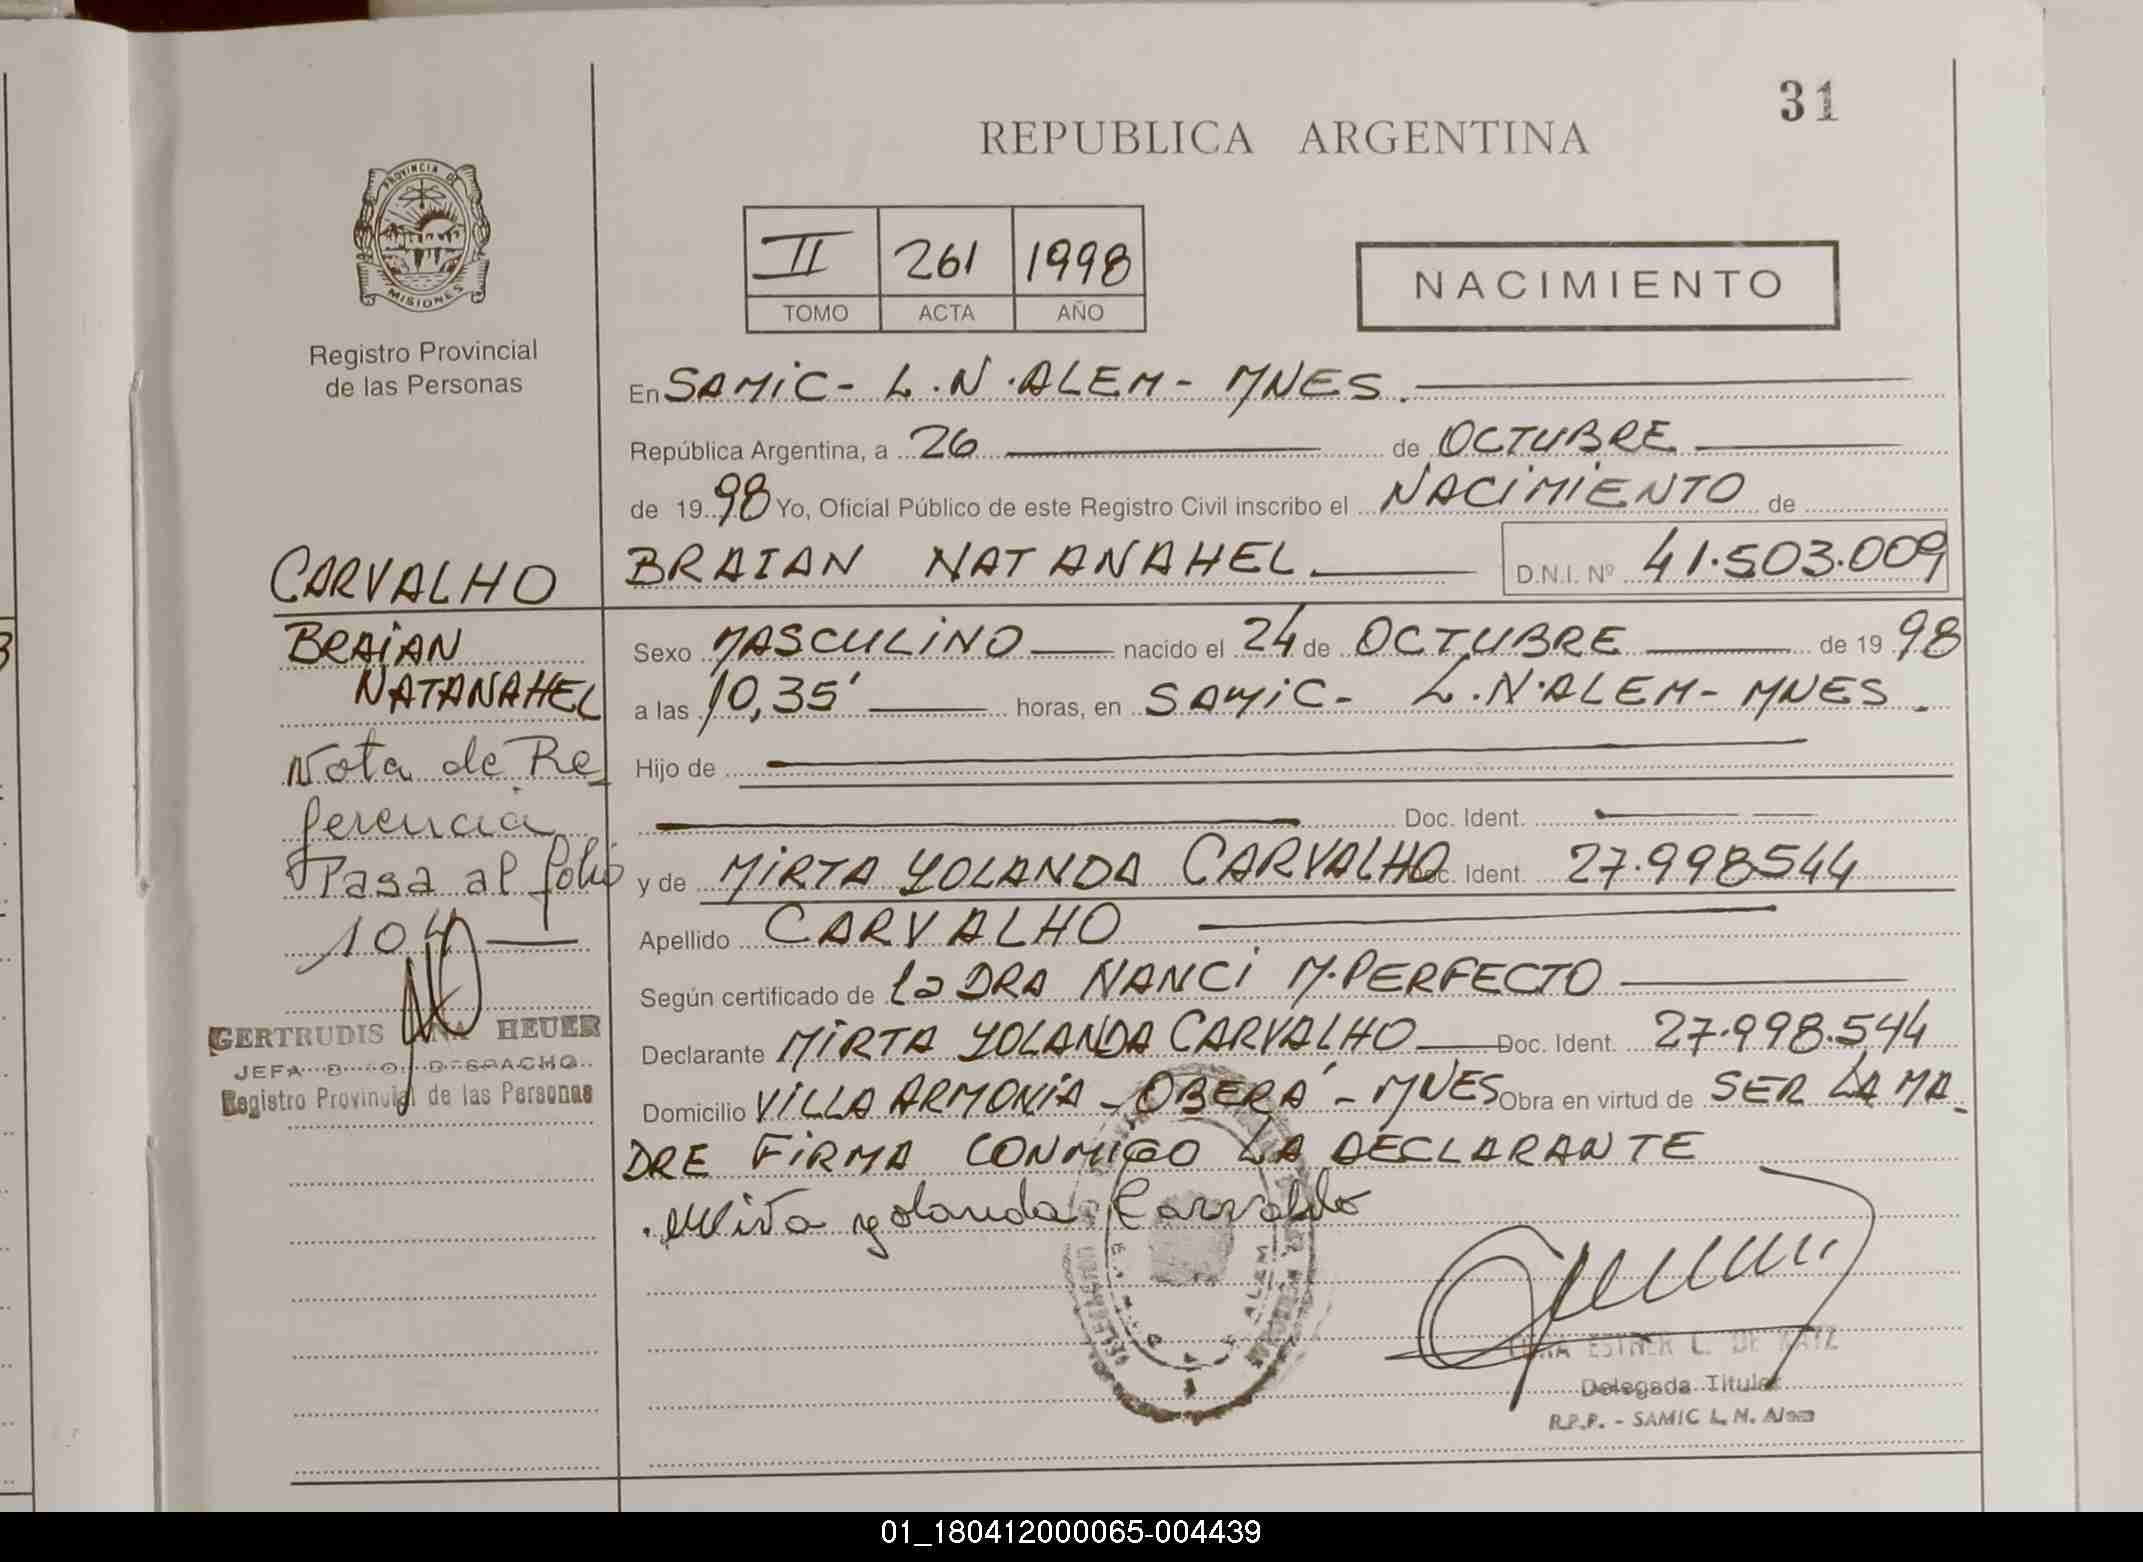 31
REPUBLICA ARGENTINA
PROVINCIA DE
MISIONES
Registro Provincial
de las Personas
II 261 1998
TOMO ACTA AÑO
NACIMIENTO
En SAMIC - L.N. ALEM - MNES.
República Argentina, a 26 de OCTUBRE
de 1998 Yo, Oficial Público de este Registro Civil inscribo el NACIMIENTO de
BRAIAN NATANAHEL D.N.I. Nº 41.503.009
Sexo MASCULINO nacido el 24 de OCTUBRE de 1998
a las 10,35' horas, en SAMIC - L.N. ALEM - MNES.
Hijo de
Doc. Ident.
y de MIRTA YOLANDA CARVALHO Doc. Ident. 27.998544
Apellido CARVALHO
Según certificado de la DRA NANCI M. PERFECTO
Declarante MIRTA YOLANDA CARVALHO Doc. Ident. 27.998.544
Domicilio VILLA ARMONIA - OBERÁ - MNES Obra en virtud de SER LA MA-
DRE FIRMA CONMIGO LA DECLARANTE
Mirta yolanda Carvalho
ESTHER L. DE KATZ
Delegada Titular
R.P.P. - SAMIC L. N. Alem
CARVALHO
BRAIAN
NATANAHEL
Nota de Re
ferencia
Pasa al folio
104
GERTRUDIS HEUER
JEFA DESPACHO
Registro Provincial de las Personas
01_180412000065-004439